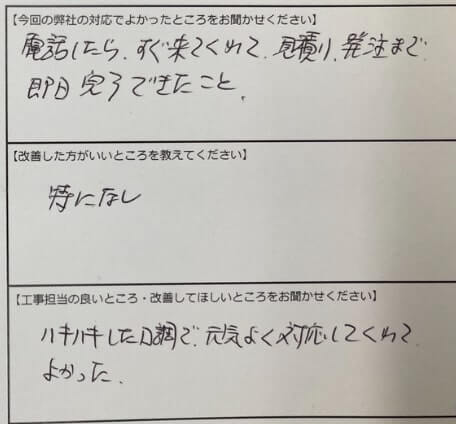 【今回の弊社の対応でよかったところをお聞かせください】
電話したら、すぐ来てくれて、見積り、発注まで
即日完了できたこと、
【改善した方がいいところを教えてください】
特になし
【工事担当の良いところ・改善してほしいところをお聞かせください】
ハキハキした口調で、元気よく対応してくれて
よかった、